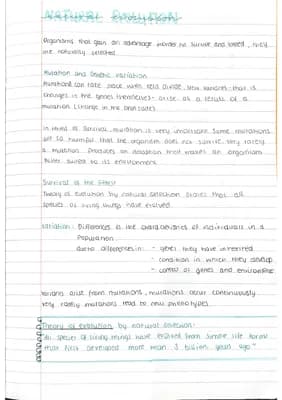 NATURAL Evolution
Organisms that gain an advantage in order to survive and breed, they
are naturally selected.
Mutation and Genetic variation
Mutations can take place with cells divide. New variants that is
changes in the genes themselves - arise as a result of a
mutation (change in the DNA code)
In terms of survival, mutation is very important. Some mutations
are so harmful that the organism does not survive. Very rarely
a mutation produces an adaption that makes an organism
better suited to its environment.
Survival of the fittest
Theory of Evolution by natural selection states that all
species of living things have evolved.
Variation: Differences in the characteristics of individuals in a
Population.
due to differences in: - genes they have inherited
- condition in which they develop
- combo of genes and environment
Variants arise from mutations, mutations occur continuously.
very rarely mutations lead to new phenotypes.
Theory of evolution by natural selection:
"All species of living things have evolved from simple life forms
that first developed more than 3 billion years ago"